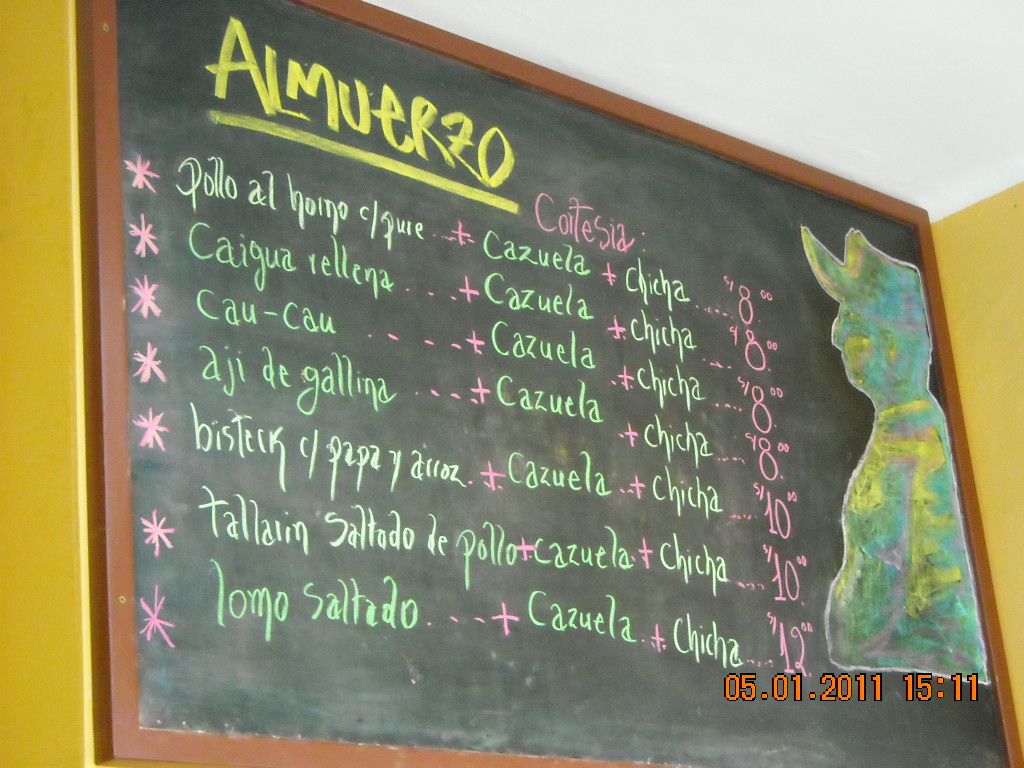 ALMUERZO
Cortesia:
* pollo al horno c/pure ...+ Cazuela + chicha ..... S/ 8.00
* Caigua rellena ....+ Cazuela + chicha .... S/ 8.00
* Cau-Cau - - - - -+ Cazuela .+ chicha .... S/ 8.00
* aji de gallina ....+ Cazuela + chicha .... S/ 8.00
* bisteck c/ papa y arroz. + Cazuela ..+ chicha .... S/ 10.00
* tallarin saltado de pollo+cazuela.+ chicha .... S/ 10.00
* lomo saltado. - - -+ Cazuela..+ chicha.... S/ 12.00
05.01.2011 15:11